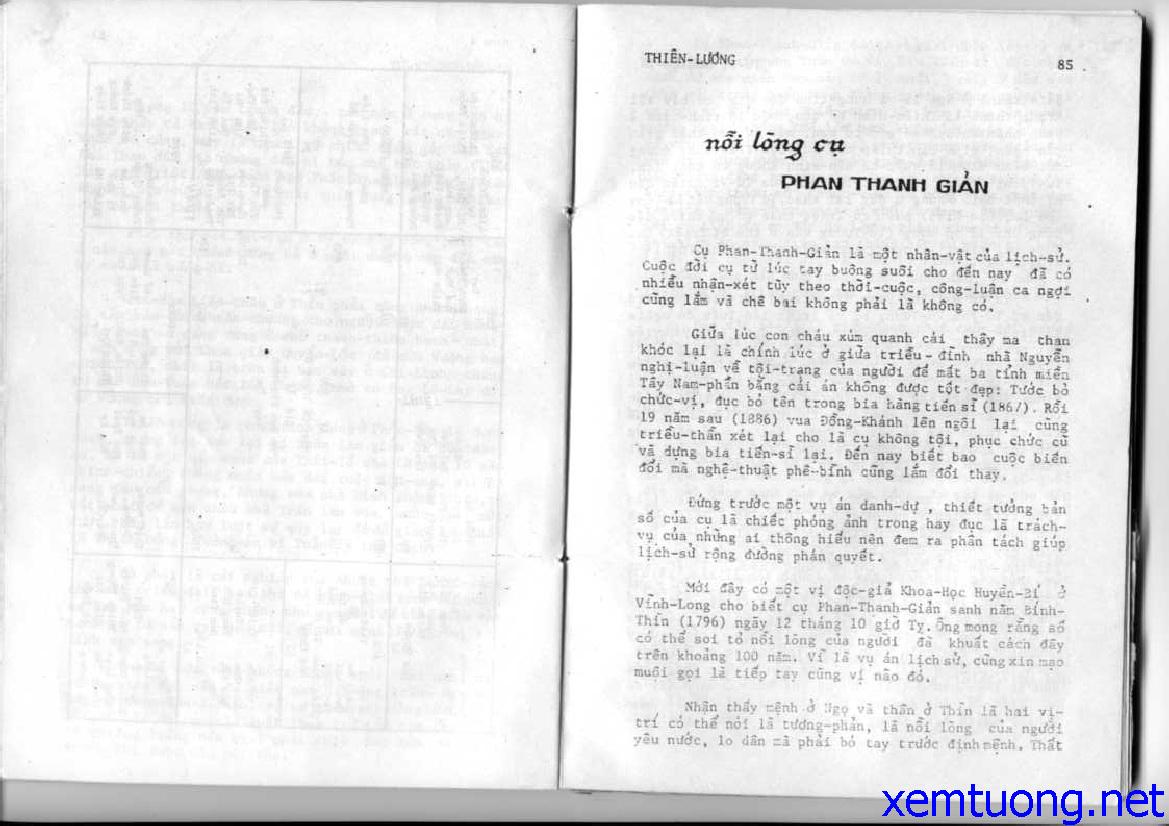 THIÊN-LƯƠNG
85
nỗi lòng cụ
PHAN THANH GIẢN
Cụ Phan-Thanh-Giản là một nhân-vật của lịch-sử.
Cuộc đời cụ từ lúc tay buông suôi cho đến nay đã có
nhiều nhận-xét tùy theo thời-cuộc, công-luận ca ngợi
cũng lắm và chê bai không phải là không có.
Giữa lúc con cháu xúm quanh cái thây ma than
khóc lại là chính lúc ở giữa triều-đình nhà Nguyễn
nghị-luận về tội-trạng của người để mất ba tỉnh miền
Tây Nam-phần bằng cái án không được tốt đẹp: Tước bỏ
chức-vị, đục bỏ tên trong bia hàng tiến sĩ (1867). Rồi
19 năm sau (1886) vua Đồng-Khánh lên ngôi lại cùng
triều-thần xét lại cho là cụ không tội, phục chức cũ
và dựng bia tiến-sĩ lại. Đến nay biết bao cuộc biến
đổi mà nghệ-thuật phê-bình cũng lắm đổi thay.
Đứng trước một vụ án danh-dự, thiết tưởng bản
số của cụ là chiếc phóng ảnh trong hay đục là trách-
vụ của những ai thông hiểu nên đem ra phân tách giúp
lịch-sử rộng đường phán quyết.
Mới đây có một vị độc-giả Khoa-Học Huyền-Bí ở
Vĩnh-Long cho biết cụ Phan-Thanh-Giản sanh năm Bính-
Thìn (1796) ngày 12 tháng 10 giờ Tỵ. Ông mong rằng số
có thể soi tỏ nỗi lòng của người đã khuất cách đây
trên khoảng 100 năm. Vì là vụ án lịch sử, cũng xin mạo
muội gọi là tiếp tay cùng vị nào đó.
Nhận thấy mệnh ở Ngọ và thân ở Thìn là hai vị-
trí có thể nói là tương-phản, là nỗi lòng của người
yêu nước, lo dân mà phải bó tay trước định mệnh. Thất
xemtuong.net